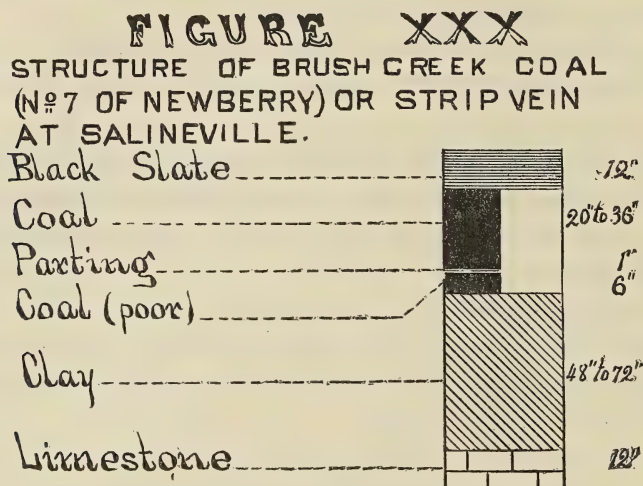 FIGURE XXX
STRUCTURE OF BRUSH CREEK COAL
(Nº 7 OF NEWBERRY) OR STRIP VEIN
AT SALINEVILLE.
Black Slate 12"
Coal 20" to 36"
Parting 1"
Coal (poor) 6"
Clay 48" to 72"
Limestone 12"